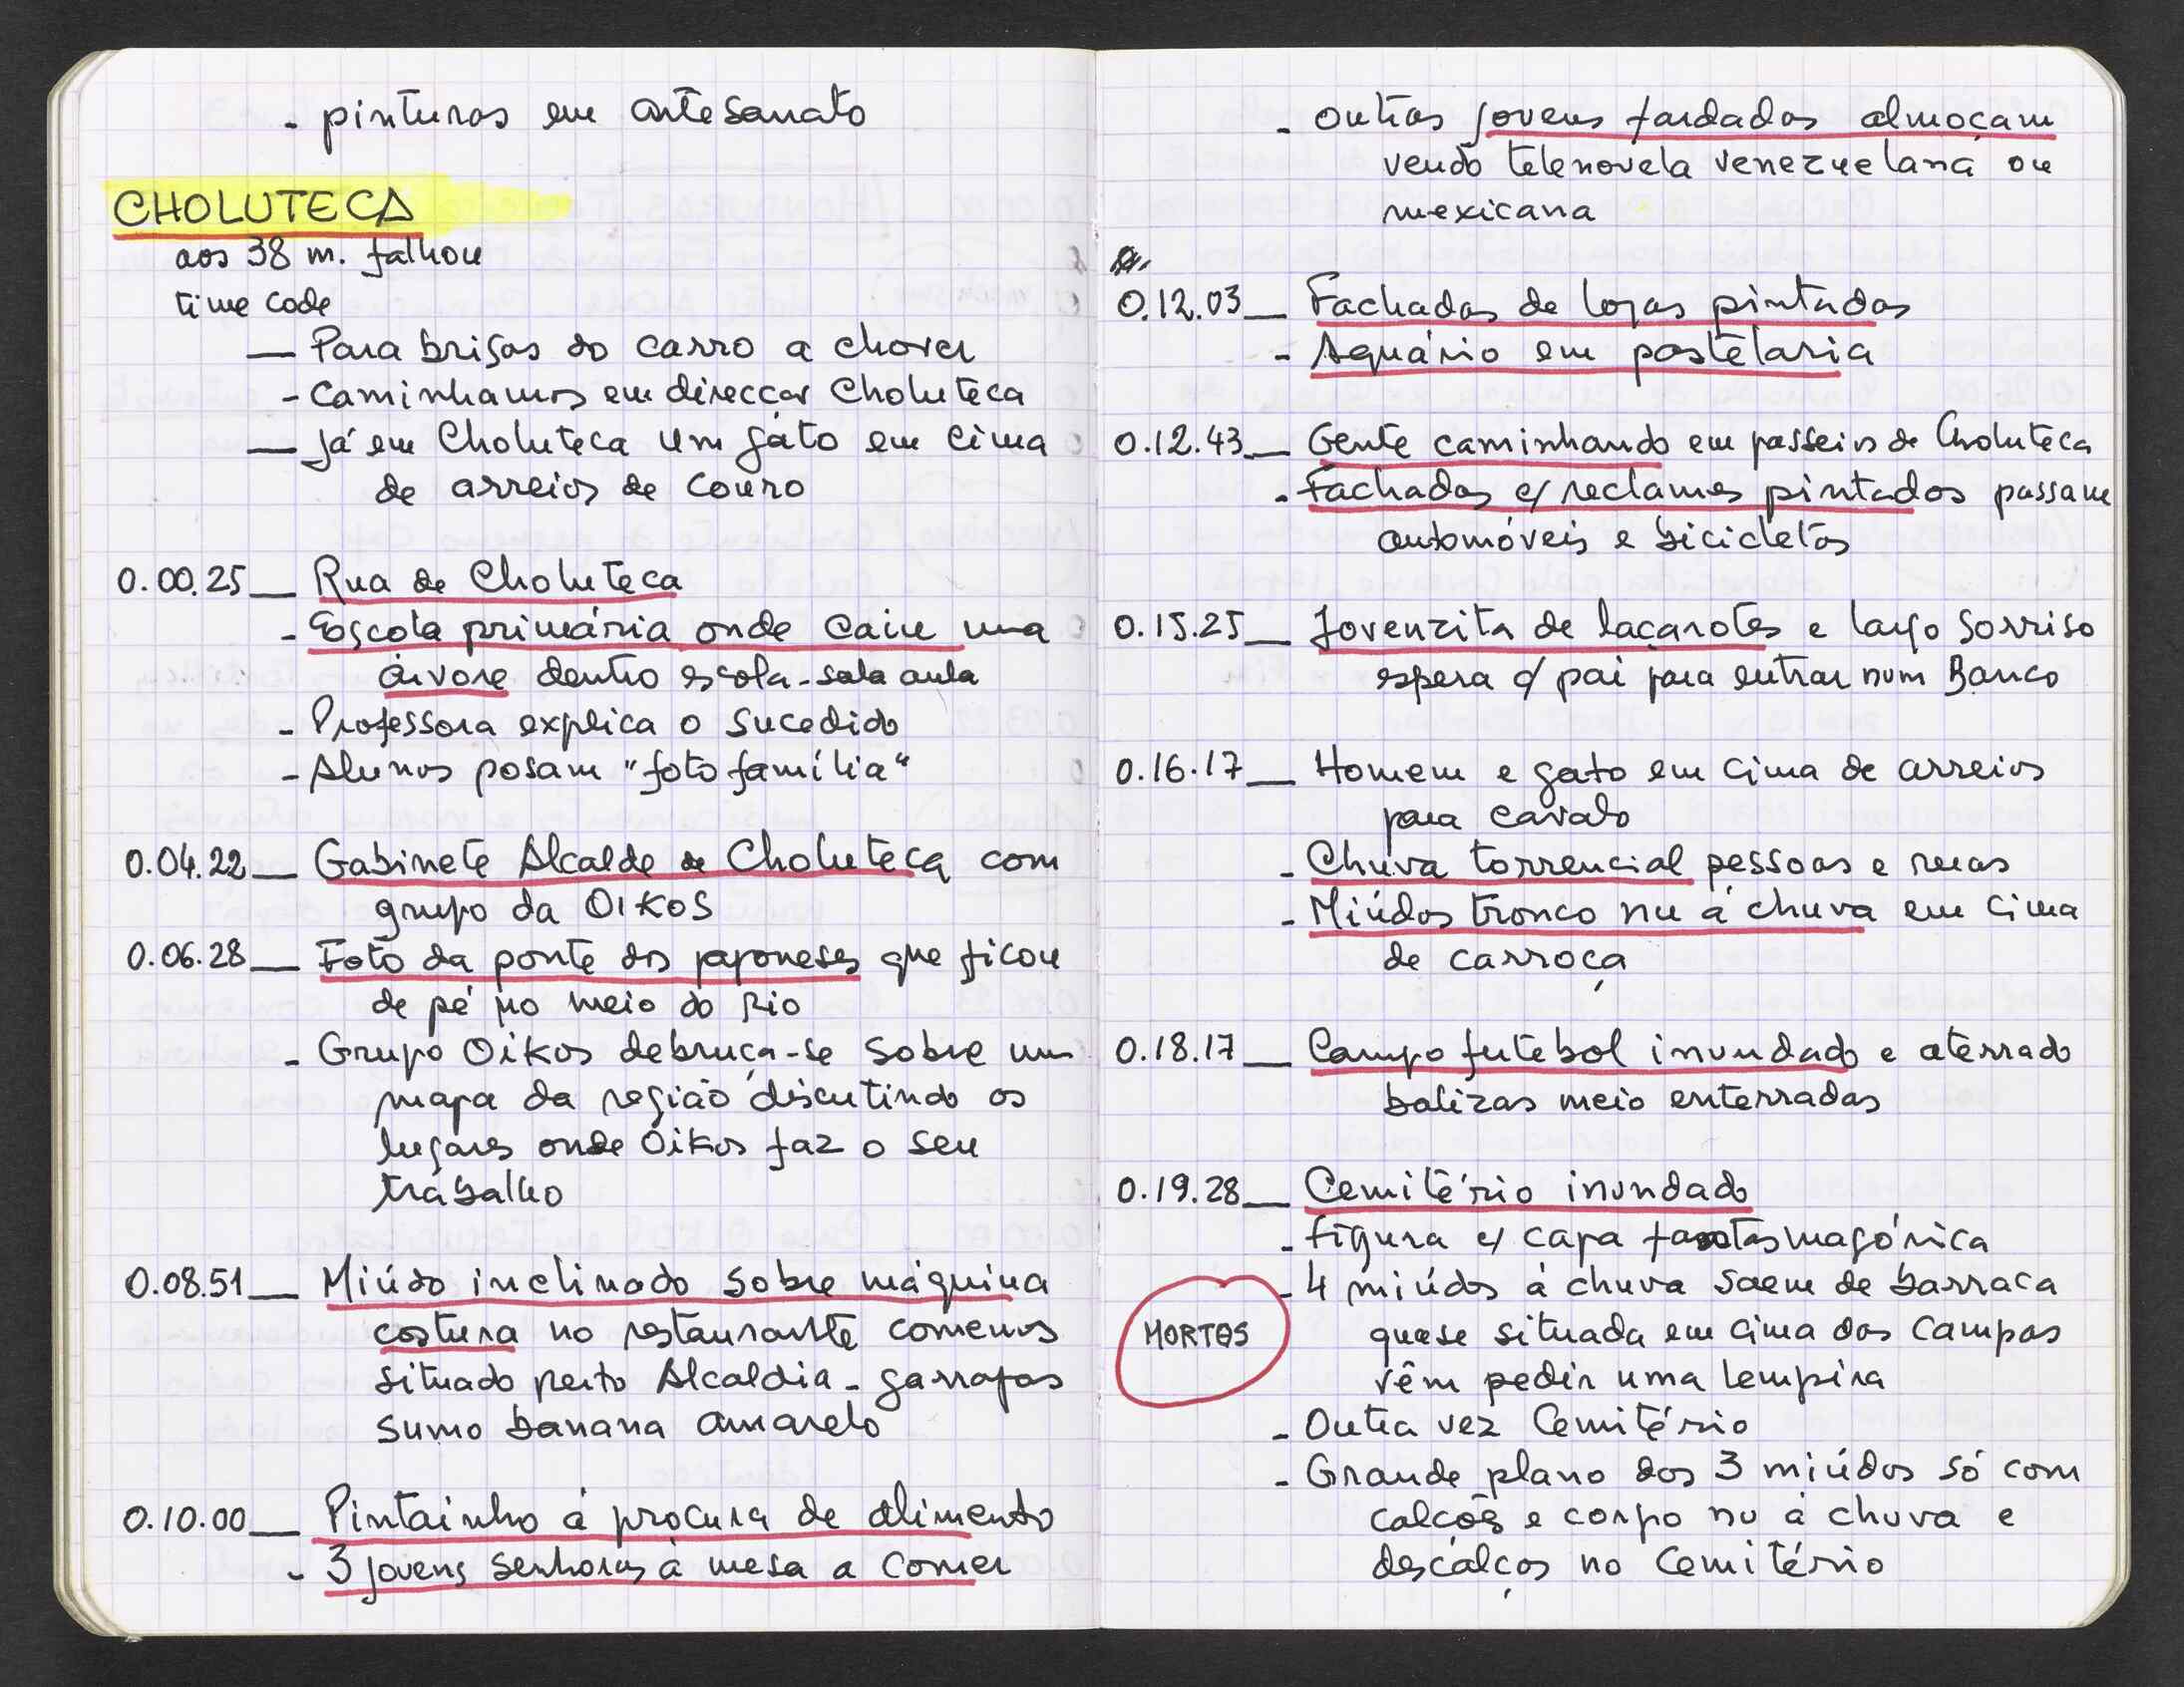 - pinturas em artesanato
CHOLUTECA
aos 38 m. falhou
time code
— Para brisas do carro a chover
- Caminhamos em direcçao Choluteca
— Já em Choluteca um gato em cima
de arreios de couro
0.00.25 — Rua de Choluteca
- Escola primária onde caiu uma
árvore dentro escola-sala aula
- Professora explica o sucedido
- Alunos posam "foto família"
0.04.22 — Gabinete Alcalde de Choluteca com
grupo da OIKOS
0.06.28 — Foto da ponte dos japoneses que ficou
de pé no meio do rio
- Grupo Oikos debruça-se sobre um
mapa da região discutindo os
lugares onde Oikos faz o seu
trabalho
0.08.51 — Miúdo inclinado sobre máquina
costura no restaurante comemos
situado perto Alcaldia - garrafas
sumo banana amarelo
0.10.00 — Pintainho á procura de alimento
- 3 jovens senhoras á mesa a comer
- Outras jovens fardadas almoçam
vendo telenovela venezuelana ou
mexicana
0.12.03 — Fachadas de lojas pintadas
- Aquário em pastelaria
0.12.43 — Gente caminhando em passeios de Choluteca
- Fachadas c/ reclames pintados passam
automóveis e bicicletas
0.15.25 — Jovenzita de laçarotes e largo sorriso
espera c/ pai para entrar num Banco
0.16.17 — Homem e gato em cima de arreios
para cavalo
- Chuva torrencial pessoas e ruas
- Miúdos tronco nu á chuva em cima
de carroça
0.18.17 — Campo futebol inundado e aterrado
balizas meio enterradas
0.19.28 — Cemitério inundado
- Figura c/ capa fantasmagórica
- 4 miúdos á chuva saem de barraca
MORTOS quase situada em cima das campas
vêm pedir uma lempira
- Outra vez Cemitério
- Grande plano dos 3 miúdos só com
calções e corpo nu á chuva e
descalços no Cemitério